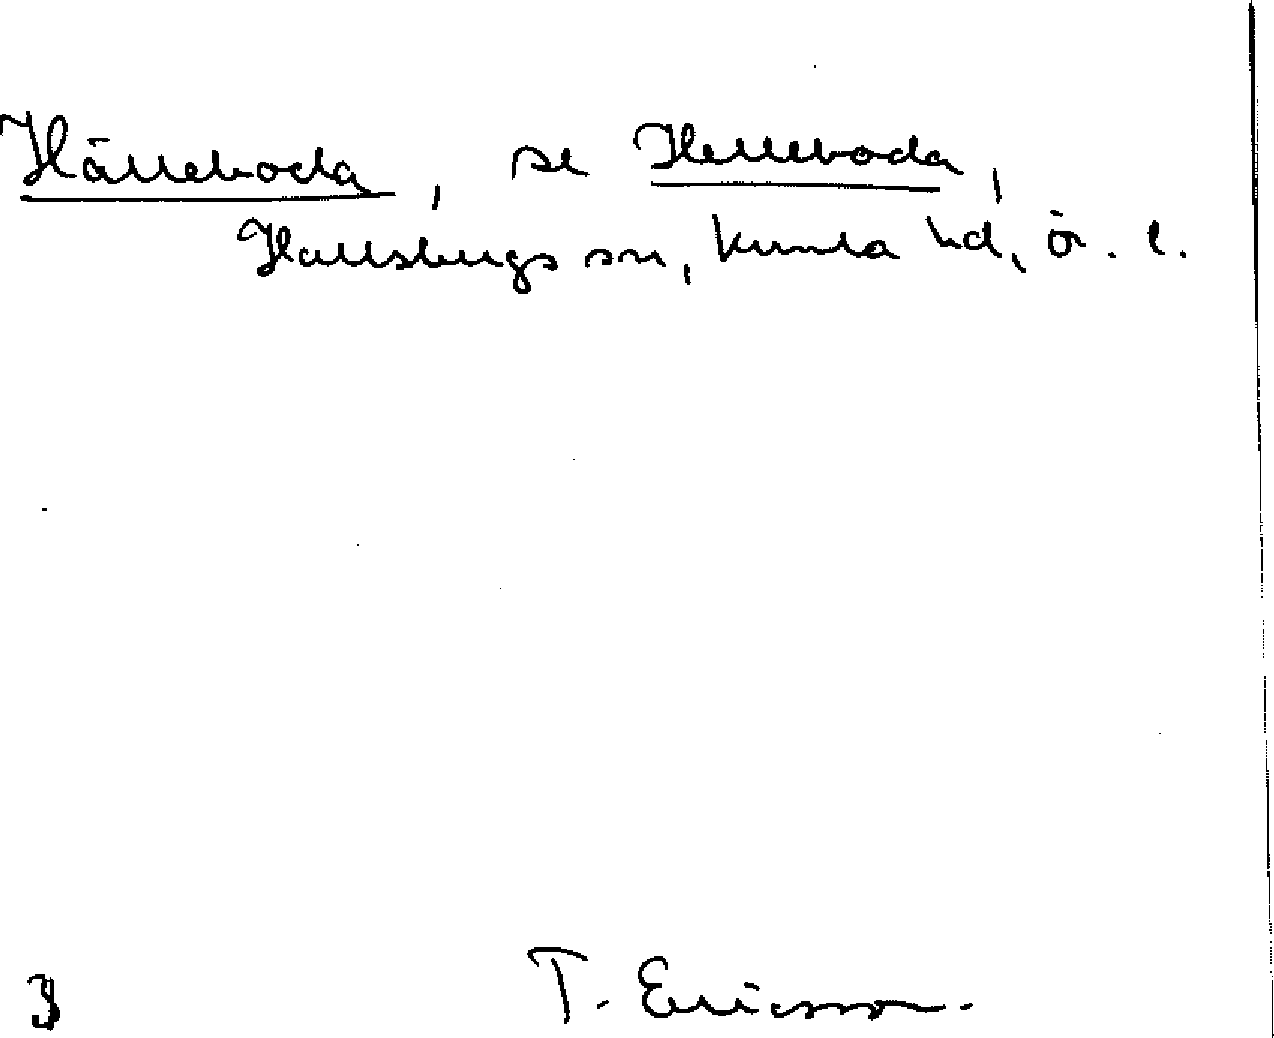 Hälleboda, se Helleboda,
Hallsbergs sn, Kumla hd, Ör. l.
T. Ericsson.